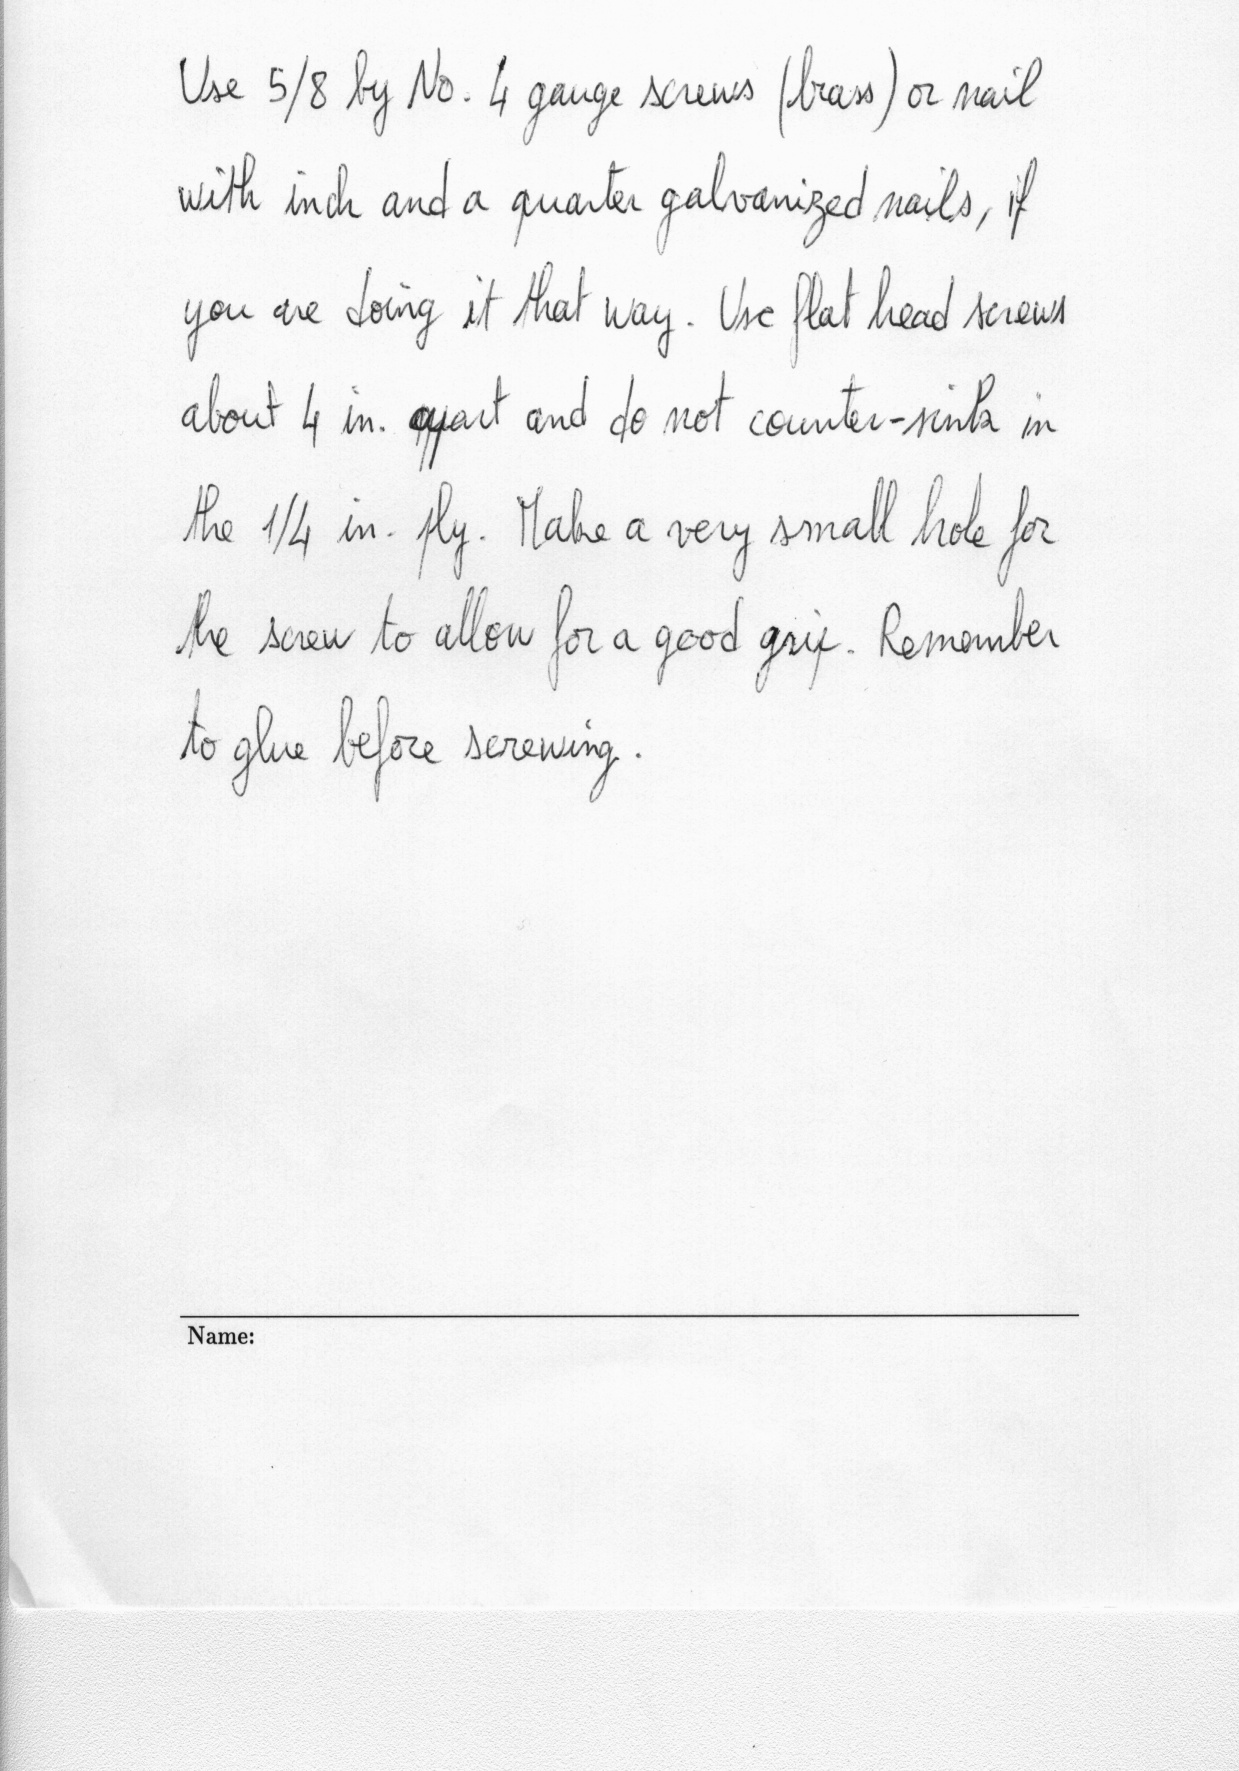 Use 5/8 by No. 4 gauge screws (brass) or nail
with inch and a quarter galvanized nails, if
you are doing it that way. Use flat head screws
about 4 in. apart and do not counter-sink in
the 1/4 in. ply. Make a very small hole for
the screw to allow for a good grip. Remember
to glue before screwing.
Name: